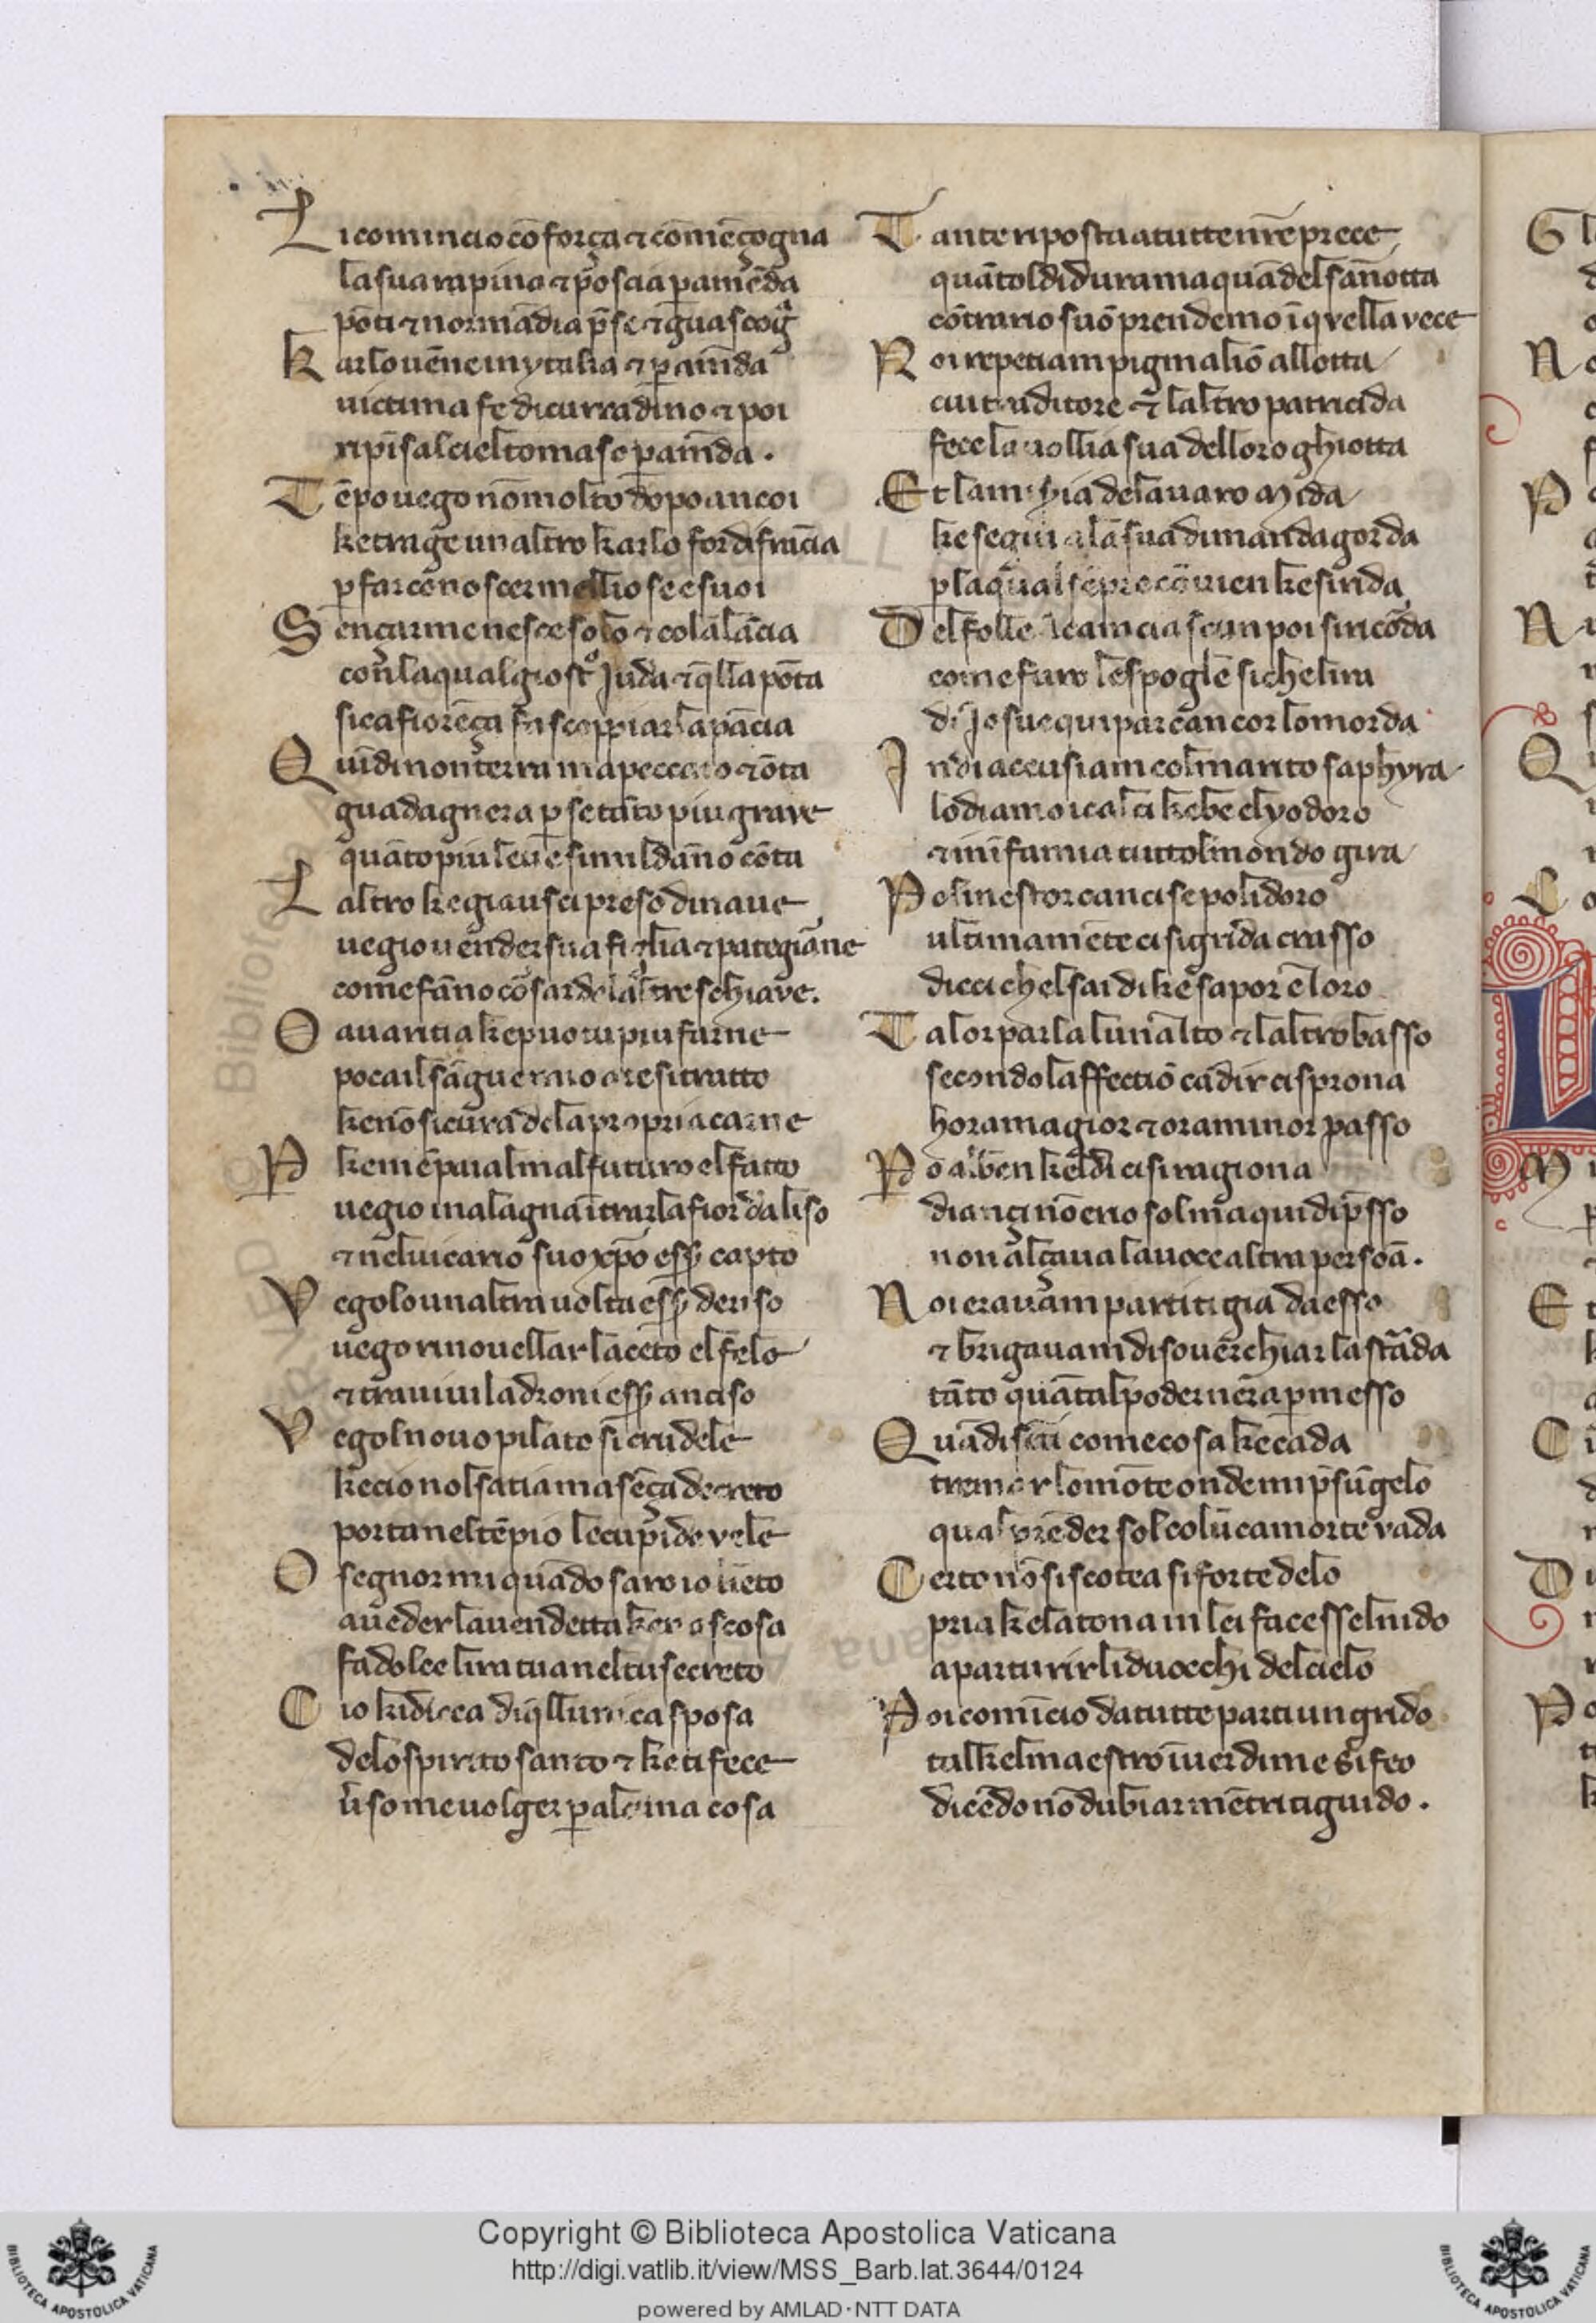 Li cominciò cō força ⁊ cō mēçogna
la sua rapina ⁊ poscia p amēda
pōti ⁊ normādia p̄se ⁊ guascogᵃ
karlo uēne in ytalia ⁊ p amīda
uictima fe di curradino ⁊ poi
ripīsalciel tomaso p amīda .
Tēpo uego nō molto dopo ancoi
ke trage un altro karlo for di frācia
p far conoscer mellio se e suoi
Sençarme nesce solo ⁊ cola lācia
con la qual giostº Juda ⁊ q̄lla pōta
sica fiorēça fa scoppiar la pācia
Quīdi non terra ma peccato ⁊ ōta
guadagnera p se tāto piu grave
quāto piu leue simil dāno cōta
Laltro ke gia usci preso di naue
uegio uender sua figlia ⁊ pategiāne
come fāno cōsar de laltre schiave.
O auaritia ke puo tu piu farne
poca il sāgue mio a te si tratto
ke nō si cura de la propria carne
P ke mē paia l mal futuro el fatto
uegio in alagna ītrar la fiordaliso
⁊ nel uicario suo xp̄o ess̄ capto
Vegolo unaltra uolta ess̄ deriso
uego rinouellar laceto el fele
⁊ tra uiui ladroni ess̄ anciso
Vegol nouo pilato si crudele
ke cio nol satia ma sēça decreto
porta nel tēpio le cupide vele
O segnor mi quādo saro io lieto
a ueder la uendetta ke ascosa
fa dolce lira tua nel tu secreto
Cio ki dicea di q̄ll unica sposa
de lo spirito santo ⁊ ke ti fece
v̄so me uolger p alcuna cosa
Tante riposta a tutte nr̄e prece
quāto l di dura ma quādel sānotta
cōtrario suō prendemo ī qvella vece
Noi repetiam pigmaliō allotta
cui traditore ⁊ laltro patricida
fece la uollia sua delloro ghiotta
Et la miseria de lauaro Mida
ke segui a la sua dimanda gorda
p la qual sēpre cōuien ke si rida
Del folle Acam ciascun poi si ricōda
come furo le spoglie si che lira
di Josue qui par cancor lo morda
Indi accusiam col marito saphyra
lodiamo i calci kebe elyodoro
⁊ in īfamia tutto l mondo gira
Polinestor cancise polidoro
ultimamēte ci si grida crasso
dicci chel sai di ke sapor e loro
Talor parla lun alto ⁊ laltro basso
secondo laffectiō ca dir ci sprona
hora magior ⁊ ora minor passo
Po al ben kel di ci si ragiona
diançi nō erio sol ma qui di p̄sso
non alçaua la uoce altra persoā .
Noi eravam partiti gia da esso
⁊ brigauam di souerchiar la strāda
tāto quāto al poder nera p messo
Quādi sētī come cosa ke cada
tremar lo mōte onde mi p̄se ū gelo
qual prēder sol colui ca morte vada
Certo nō si scotea si forte delo
pria ke latona in lei facesse l nido
a parturir li du occhi del cielo
Poi comīcio da tutte parti un grido
tal kel maestro īuer di me si feo
dicēdo nō dubiar mētr i ti guido .
Copyright © Biblioteca Apostolica Vaticana
http://digi.vatlib.it/view/MSS_Barb.lat.3644/0124
powered by AMLAD·NTT DATA